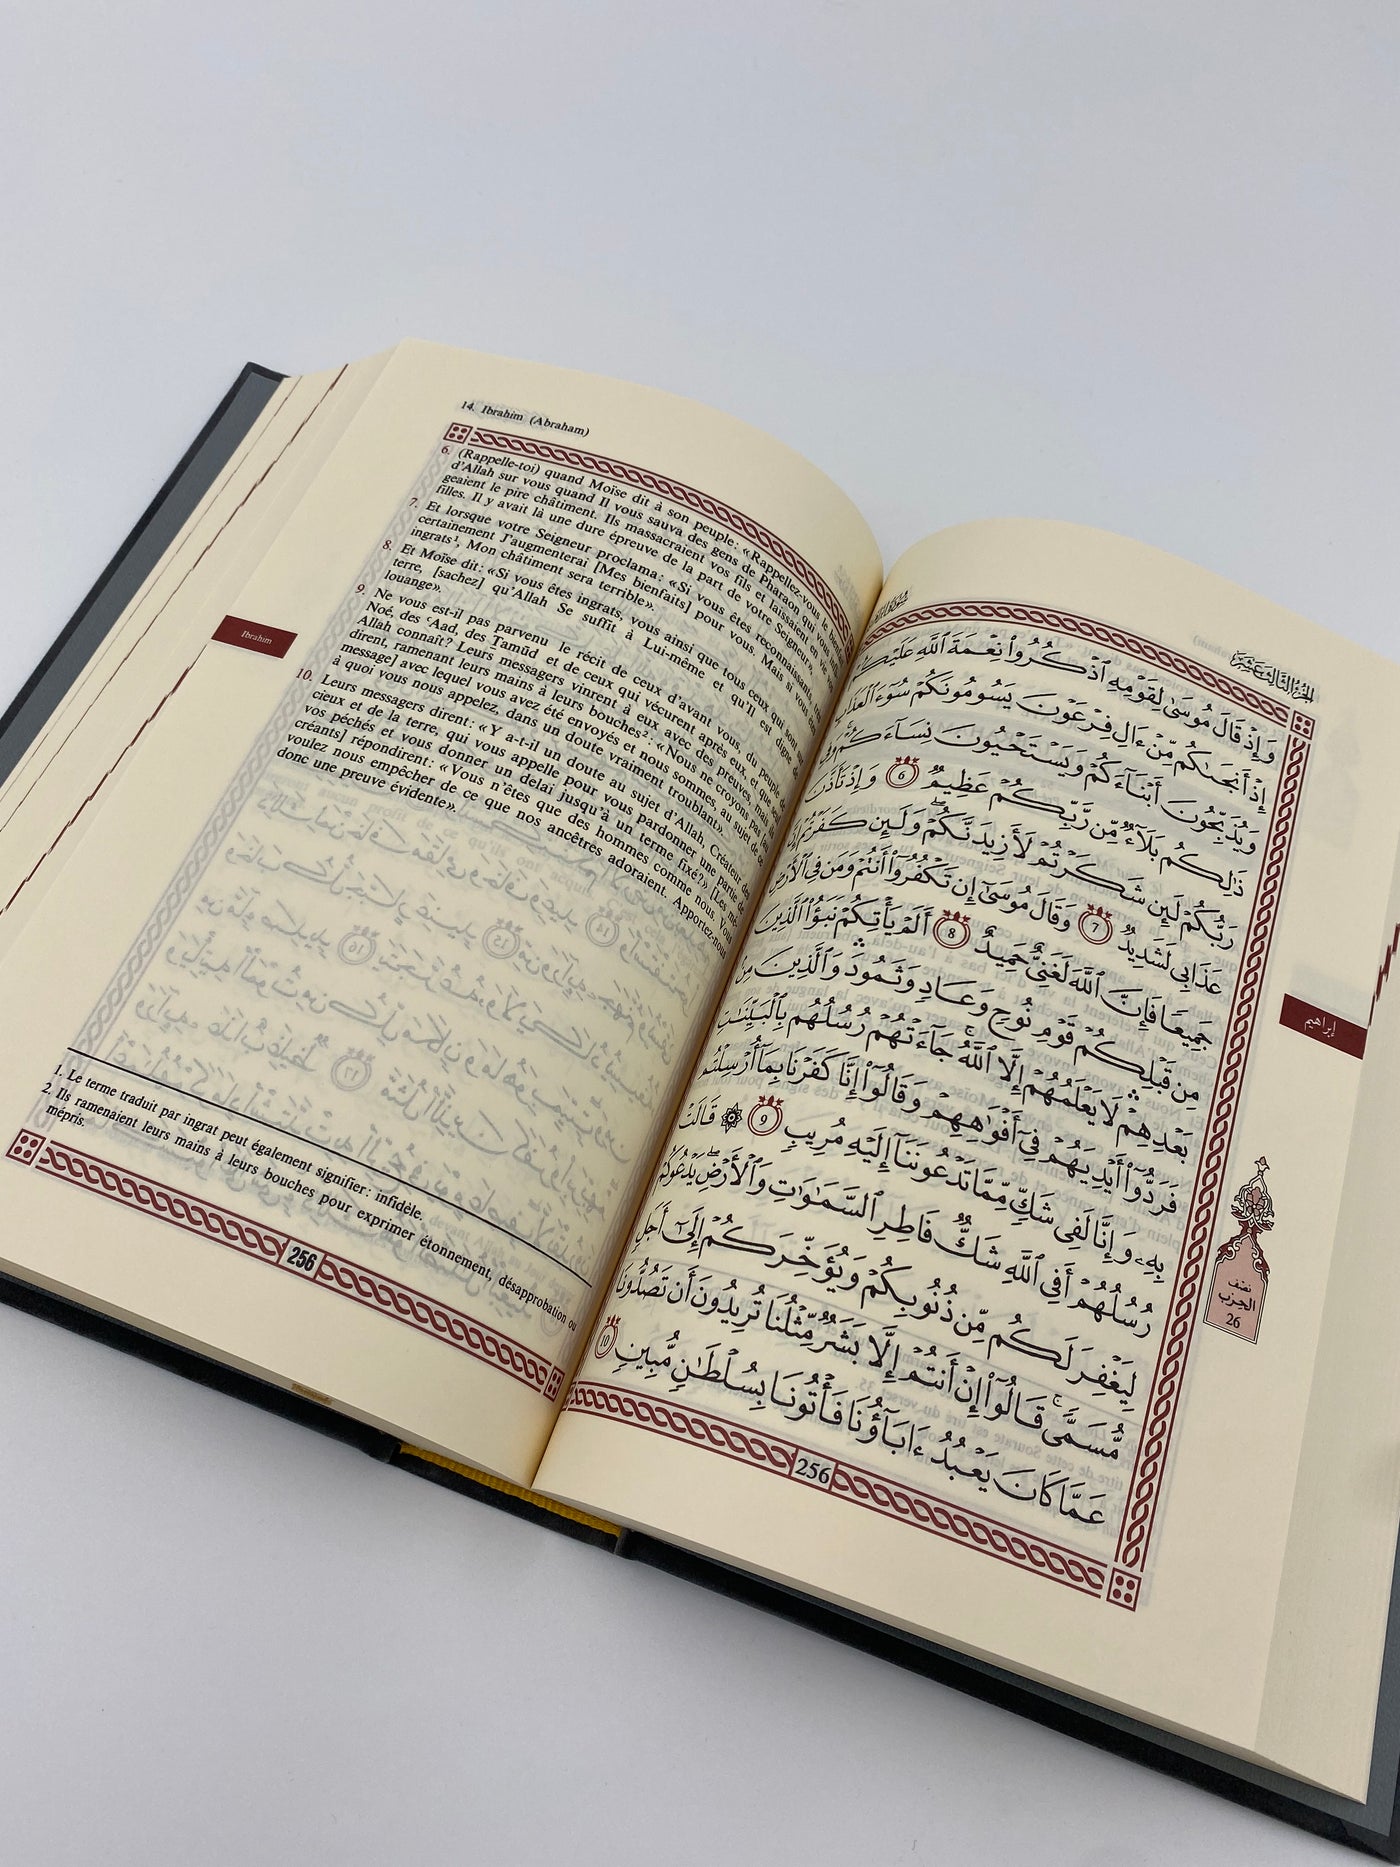 14. Ibrahim (Abraham)
6. (Rappelle-toi) quand Moïse dit à son peuple: «Rappellez-vous le
d'Allah sur vous quand Il vous sauva des gens de Pharaon qui vous
geaient le pire châtiment. Ils massacraient vos fils et laissaient en vie vos
filles. Il y avait là une dure épreuve de la part de votre Seigneur».
7. Et lorsque votre Seigneur proclama: «Si vous êtes reconnaissants, très
certainement J'augmenterai [Mes bienfaits] pour vous. Mais si vous êtes
ingrats¹, Mon châtiment sera terrible».
8. Et Moïse dit: «Si vous êtes ingrats, vous ainsi que tous ceux qui sont sur
terre, [sachez] qu'Allah Se suffit à Lui-même et qu'Il est digne de
louange».
9. Ne vous est-il pas parvenu le récit de ceux d'avant vous, du peuple de
Noé, des 'Aad, des Ṯamūd et de ceux qui vécurent après eux, et que seul
Allah connaît? Leurs messagers vinrent à eux avec des preuves, mais ils
dirent, ramenant leurs mains à leurs bouches²: «Nous ne croyons pas [au
message] avec lequel vous avez été envoyés et nous sommes, au sujet de ce
à quoi vous nous appelez, dans un doute vraiment troublant».
10. Leurs messagers dirent: «Y a-t-il un doute au sujet d'Allah, Créateur des
cieux et de la terre, qui vous appelle pour vous pardonner une partie de
vos péchés et vous donner un délai jusqu'à un terme fixé?» [Les mé-
créants] répondirent: «Vous n'êtes que des hommes comme nous. Vous
voulez nous empêcher de ce que nos ancêtres adoraient. Apportez-nous
donc une preuve évidente».
1. Le terme traduit par ingrat peut également signifier: infidèle.
2. Ils ramenaient leurs mains à leurs bouches pour exprimer étonnement, désapprobation ou
mépris.
256
Ibrahim
الجزء الثالث عشر
وَإِذْ قَالَ مُوسَىٰ لِقَوْمِهِ ٱذْكُرُوا۟ نِعْمَةَ ٱللَّهِ عَلَيْكُمْ
إِذْ أَنجَىٰكُم مِّنْ ءَالِ فِرْعَوْنَ يَسُومُونَكُمْ سُوٓءَ ٱلْعَذَابِ
وَيُذَبِّحُونَ أَبْنَآءَكُمْ وَيَسْتَحْيُونَ نِسَآءَكُمْ وَفِى
ذَٰلِكُم بَلَآءٌ مِّن رَّبِّكُمْ عَظِيمٌ ٦ وَإِذْ تَأَذَّنَ
رَبُّكُمْ لَئِن شَكَرْتُمْ لَأَزِيدَنَّكُمْ وَلَئِن كَفَرْتُمْ إِنَّ
عَذَابِى لَشَدِيدٌ ٧ وَقَالَ مُوسَىٰٓ إِن تَكْفُرُوٓا۟ أَنتُمْ وَمَن فِى ٱلْأَرْضِ
جَمِيعًا فَإِنَّ ٱللَّهَ لَغَنِىٌّ حَمِيدٌ ٨ أَلَمْ يَأْتِكُمْ نَبَؤُا۟ ٱلَّذِينَ
مِن قَبْلِكُمْ قَوْمِ نُوحٍ وَعَادٍ وَثَمُودَ وَٱلَّذِينَ مِنۢ
بَعْدِهِمْ لَا يَعْلَمُهُمْ إِلَّا ٱللَّهُ جَآءَتْهُمْ رُسُلُهُم بِٱلْبَيِّنَٰتِ
فَرَدُّوٓا۟ أَيْدِيَهُمْ فِىٓ أَفْوَٰهِهِمْ وَقَالُوٓا۟ إِنَّا كَفَرْنَا بِمَآ أُرْسِلْتُم
بِهِۦ وَإِنَّا لَفِى شَكٍّ مِّمَّا تَدْعُونَنَآ إِلَيْهِ مُرِيبٍ ٩ ۞ قَالَتْ
رُسُلُهُمْ أَفِى ٱللَّهِ شَكٌّ فَاطِرِ ٱلسَّمَٰوَٰتِ وَٱلْأَرْضِ يَدْعُوكُمْ
لِيَغْفِرَ لَكُم مِّن ذُنُوبِكُمْ وَيُؤَخِّرَكُمْ إِلَىٰٓ أَجَلٍ
مُّسَمًّى قَالُوٓا۟ إِنْ أَنتُمْ إِلَّا بَشَرٌ مِّثْلُنَا تُرِيدُونَ أَن تَصُدُّونَا
عَمَّا كَانَ يَعْبُدُ ءَابَآؤُنَا فَأْتُونَا بِسُلْطَٰنٍ مُّبِينٍ ١٠
256
إبراهيم
نصف
الحزب
26